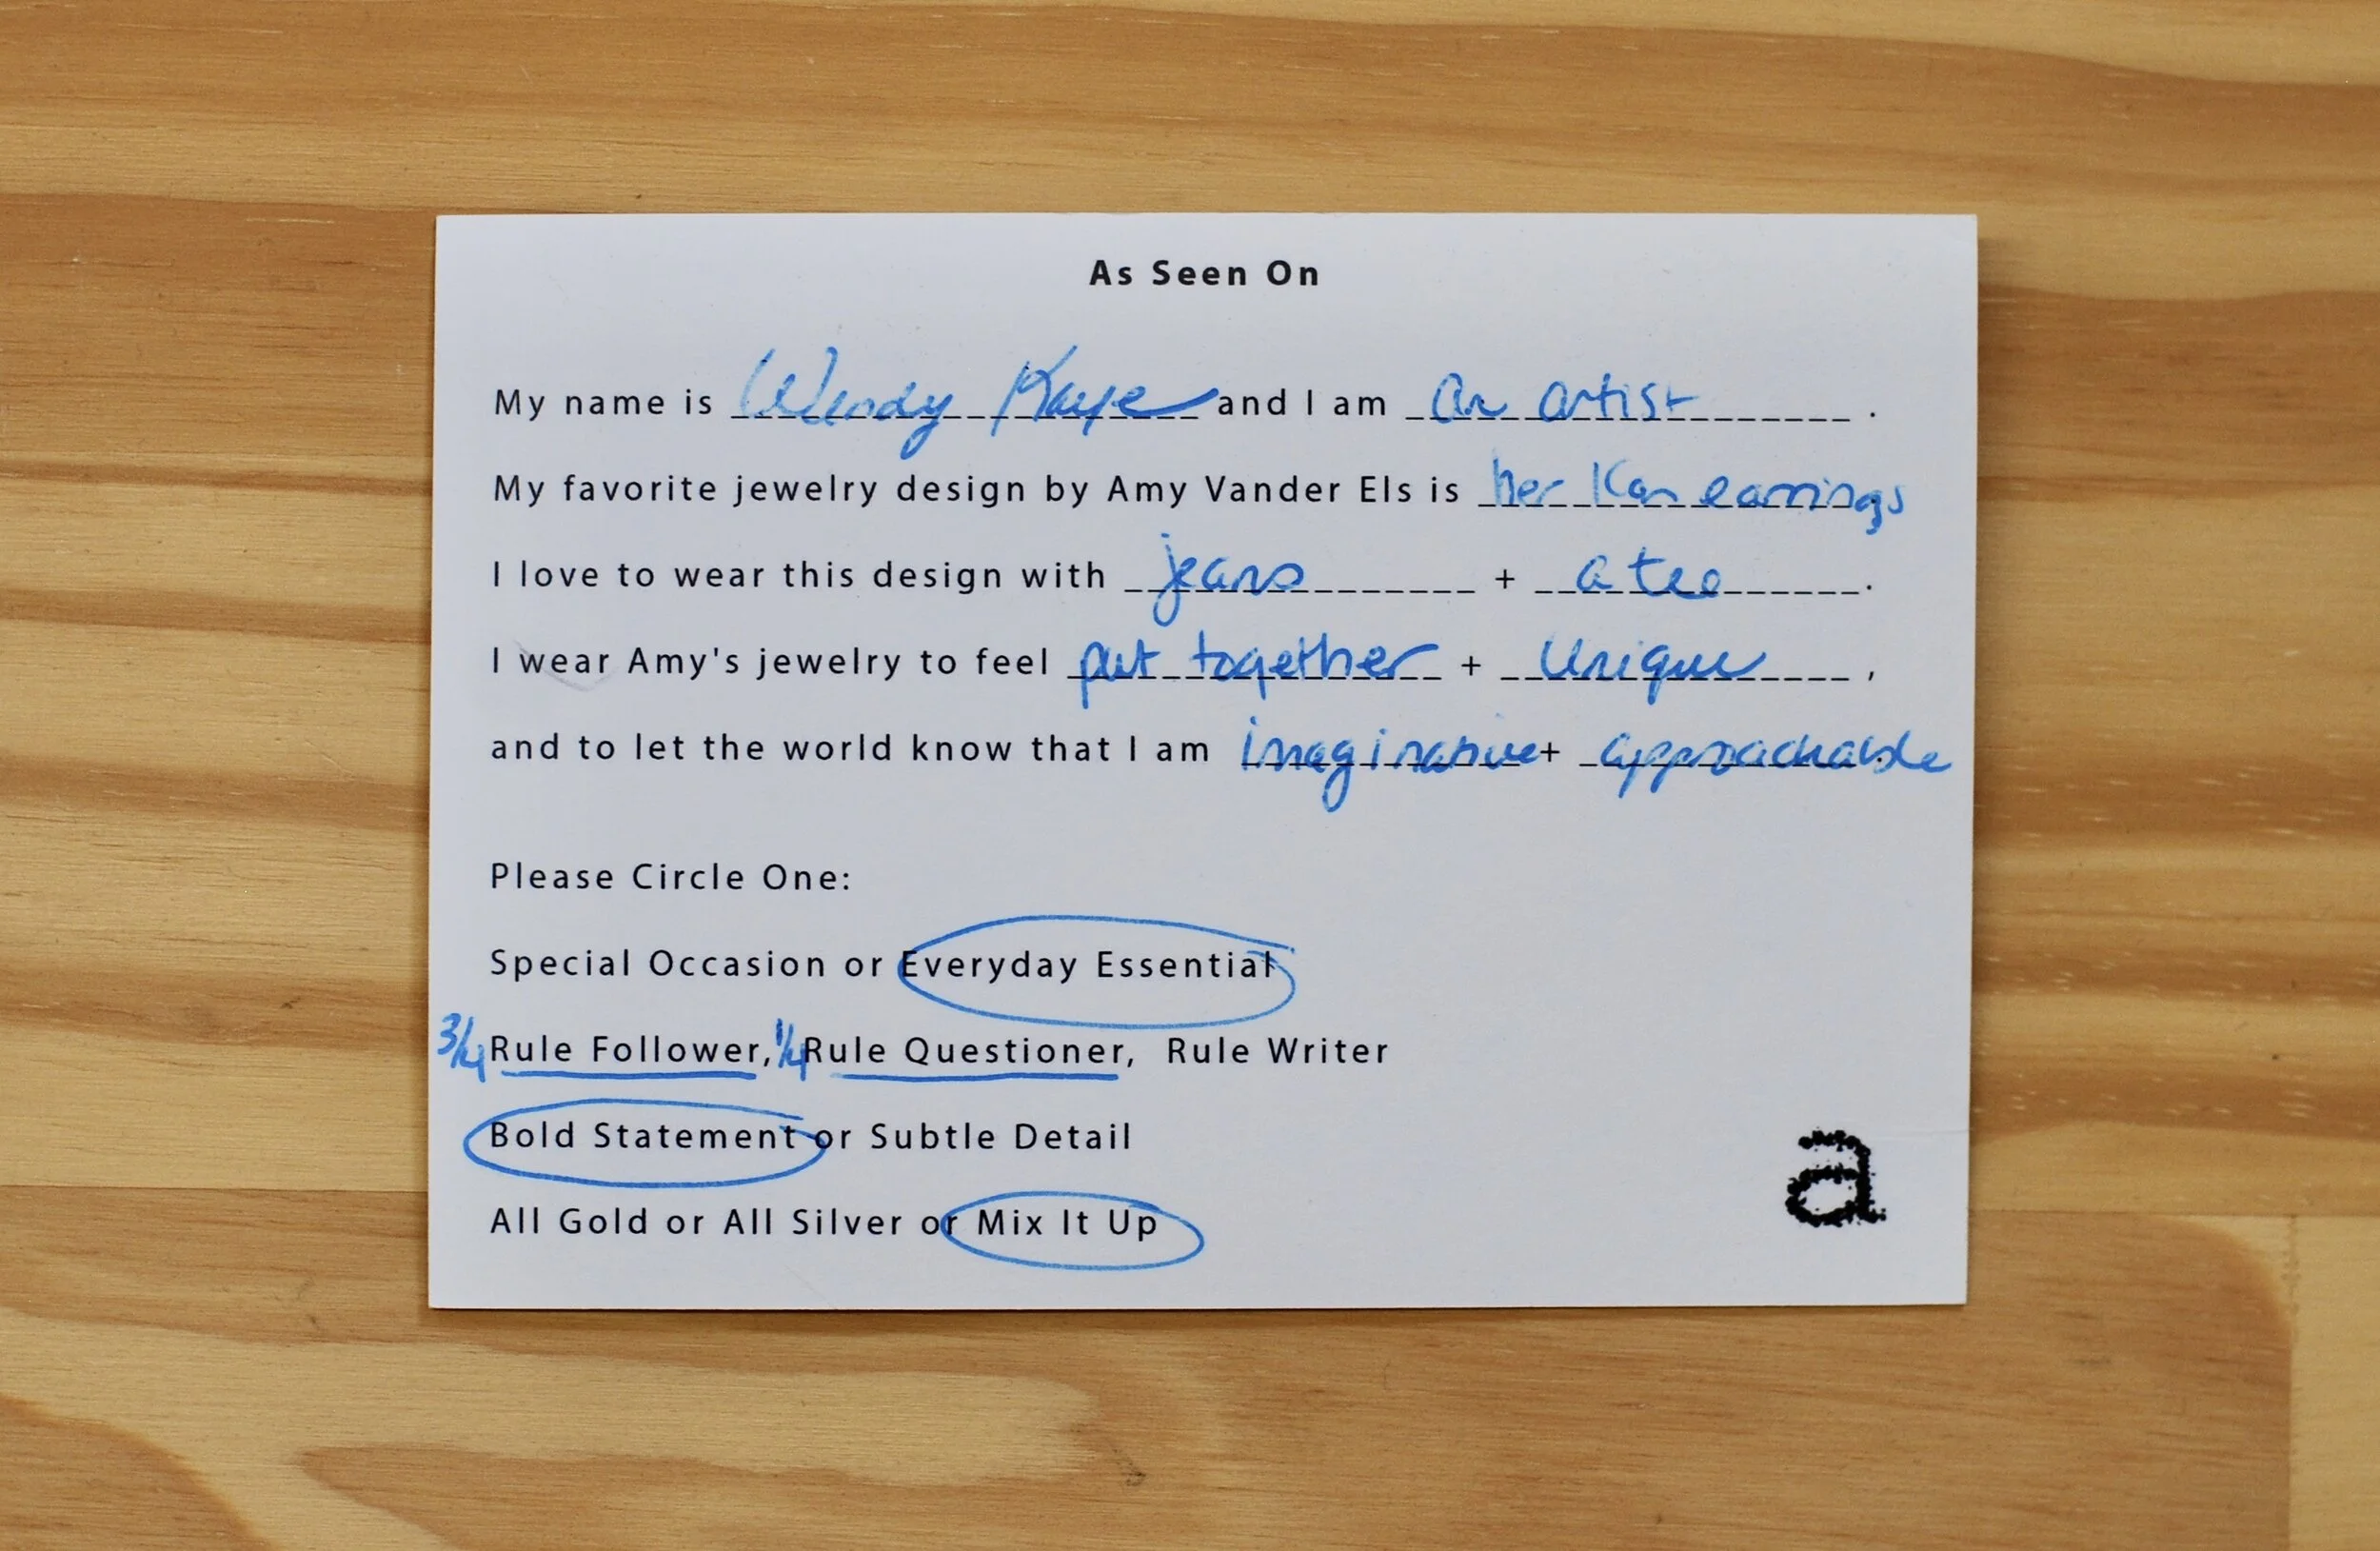 As Seen On
My name is Wendy Kaye and I am an artist.
My favorite jewelry design by Amy Vander Els is her Kan earrings
I love to wear this design with jeans + a tee.
I wear Amy's jewelry to feel put together + unique,
and to let the world know that I am imaginative + approachable.
Please Circle One:
Special Occasion or Everyday Essential
3/4 Rule Follower, 1/4 Rule Questioner, Rule Writer
Bold Statement or Subtle Detail
All Gold or All Silver or Mix It Up
a